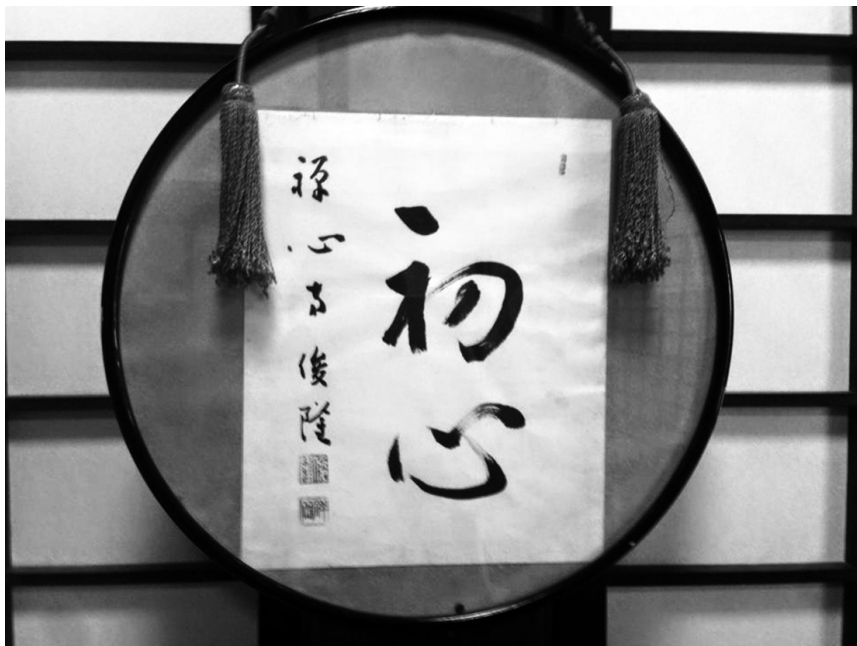 初心
禅心寺俊隆